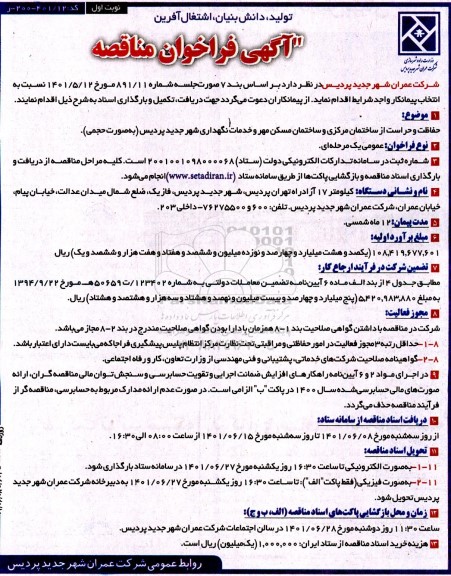 نوبت اول
کد ۲۰۱/۱۲-۲۰۰-ر
تولید، دانش بنیان، اشتغال آفرین
"آگهی فراخوان مناقصه
شرکت عمران شهر جدید پردیس در نظر دارد بر اساس بند ۷ صورتجلسه شماره ۸۹۱/۱۱ مورخ ۱۴۰۱/۵/۱۲ نسبت به
انتخاب پیمانکار واجد شرایط اقدام نماید. از پیمانکاران دعوت می‌گردد جهت دریافت، تکمیل و بارگذاری اسناد به شرح ذیل اقدام نمایند.
۱ موضوع:
حفاظت و حراست از ساختمان مرکزی و ساختمان مسکن مهر و خدمات نگهداری شهر جدید پردیس (به‌صورت حجمی).
۲ نوع فراخوان: عمومی یک مرحله‌ای.
۳ شماره ثبت در سامانه تدارکات الکترونیکی دولت (ستاد) ۲۰۰۱۰۰۱۰۹۸۰۰۰۰۶۸ است. کلیه مراحل مناقصه از دریافت و
بارگذاری اسناد مناقصه و بازگشایی پاکت‌ها از طریق سامانه ستاد (www.setadiran.ir) انجام می‌شود.
۴ نام و نشانی دستگاه: کیلومتر ۱۷ آزادراه تهران پردیس، شهر جدید پردیس، فاز یک، ضلع شمال میدان عدالت، خیابان پیام،
خیابان عمران، شرکت عمران شهر جدید پردیس. تلفن: ۶۰۰ و ۷۶۲۷۵۵۰۰-داخلی ۲۰۳.
۵ مدت پیمان: ۱۲ ماه شمسی.
۶ مبلغ برآورد اولیه:
۱۰۸,۴۱۹,۶۷۷,۶۰۱ (یکصد و هشت میلیارد و چهارصد و نوزده میلیون و ششصد و هفتاد و هفت هزار و ششصد و یک) ریال
۷ تضمین شرکت در فرآیند ارجاع کار:
مطابق جدول ۴ از بند الف ماده ۶ آیین‌نامه تضمین معاملات دولتی به شماره ۱۲۳۴۰۲/ت ۵۰۶۵۹ هـ مورخ ۱۳۹۴/۹/۲۲
به مبلغ ۵,۴۲۰,۹۸۳,۸۸۰ (پنج میلیارد و چهارصد و بیست میلیون و نهصد و هشتاد و سه هزار و هشتصد و هشتاد) ریال.
۸ مجوز فعالیت:
شرکت در مناقصه با داشتن گواهی صلاحیت بند ۱-۸ همزمان با دارا بودن گواهی صلاحیت مندرج در بند ۲-۸ مجاز می‌باشد.
۱-۸-حداقل رتبه ۳ مجوز فعالیت در امور حفاظتی و مراقبتی تحت نظارت مرکز انتظام پلیس پیشگیری فراجا که می‌بایست دارای اعتبار باشد.
۲-۸-گواهینامه صلاحیت شرکت‌های خدماتی، پشتیبانی و فنی مهندسی از وزارت تعاون، کار و رفاه اجتماعی.
۹ در اجرای مواد ۲ و ۶ آیین‌نامه راهکارهای افزایش ضمانت اجرایی و تقویت حسابرسی و سنجش توان مالی مناقصه گران، ارائه
صورت‌های مالی حسابرسی شده سال ۱۴۰۰ در پاکت "ب" الزامی است. در صورت عدم ارائه مدارک مربوط به حسابرسی، مناقصه‌گر از
فرآیند مناقصه حذف می‌گردد.
۱۰ دریافت اسناد مناقصه از سامانه ستاد:
از روز سه‌شنبه مورخ ۱۴۰۱/۰۶/۰۸ تا روز سه‌شنبه مورخ ۱۴۰۱/۰۶/۱۵ از ساعت ۰۸:۰۰ الی ۱۶:۳۰.
۱۱ تحویل اسناد مناقصه:
۱-۱۱-به‌صورت الکترونیکی تا ساعت ۱۶:۳۰ روز یکشنبه مورخ ۱۴۰۱/۰۶/۲۷ در سامانه ستاد بارگذاری شود.
۲-۱۱-به‌صورت فیزیکی (فقط پاکت "الف"): تا ساعت ۱۶:۳۰ روز یکشنبه مورخ ۱۴۰۱/۰۶/۲۷ به دبیرخانه شرکت عمران شهر جدید
پردیس تحویل شود.
۱۲ زمان و محل بازگشایی پاکت‌های اسناد مناقصه (الف، ب و ج):
ساعت ۱۱:۳۰ روز دوشنبه مورخ ۱۴۰۱/۰۶/۲۸ در سالن اجتماعات شرکت عمران شهر جدید پردیس.
۱۳ هزینه خرید اسناد مناقصه از ستاد ایران: ۱,۰۰۰,۰۰۰ (یک میلیون) ریال است.
روابط عمومی شرکت عمران شهر جدید پردیس